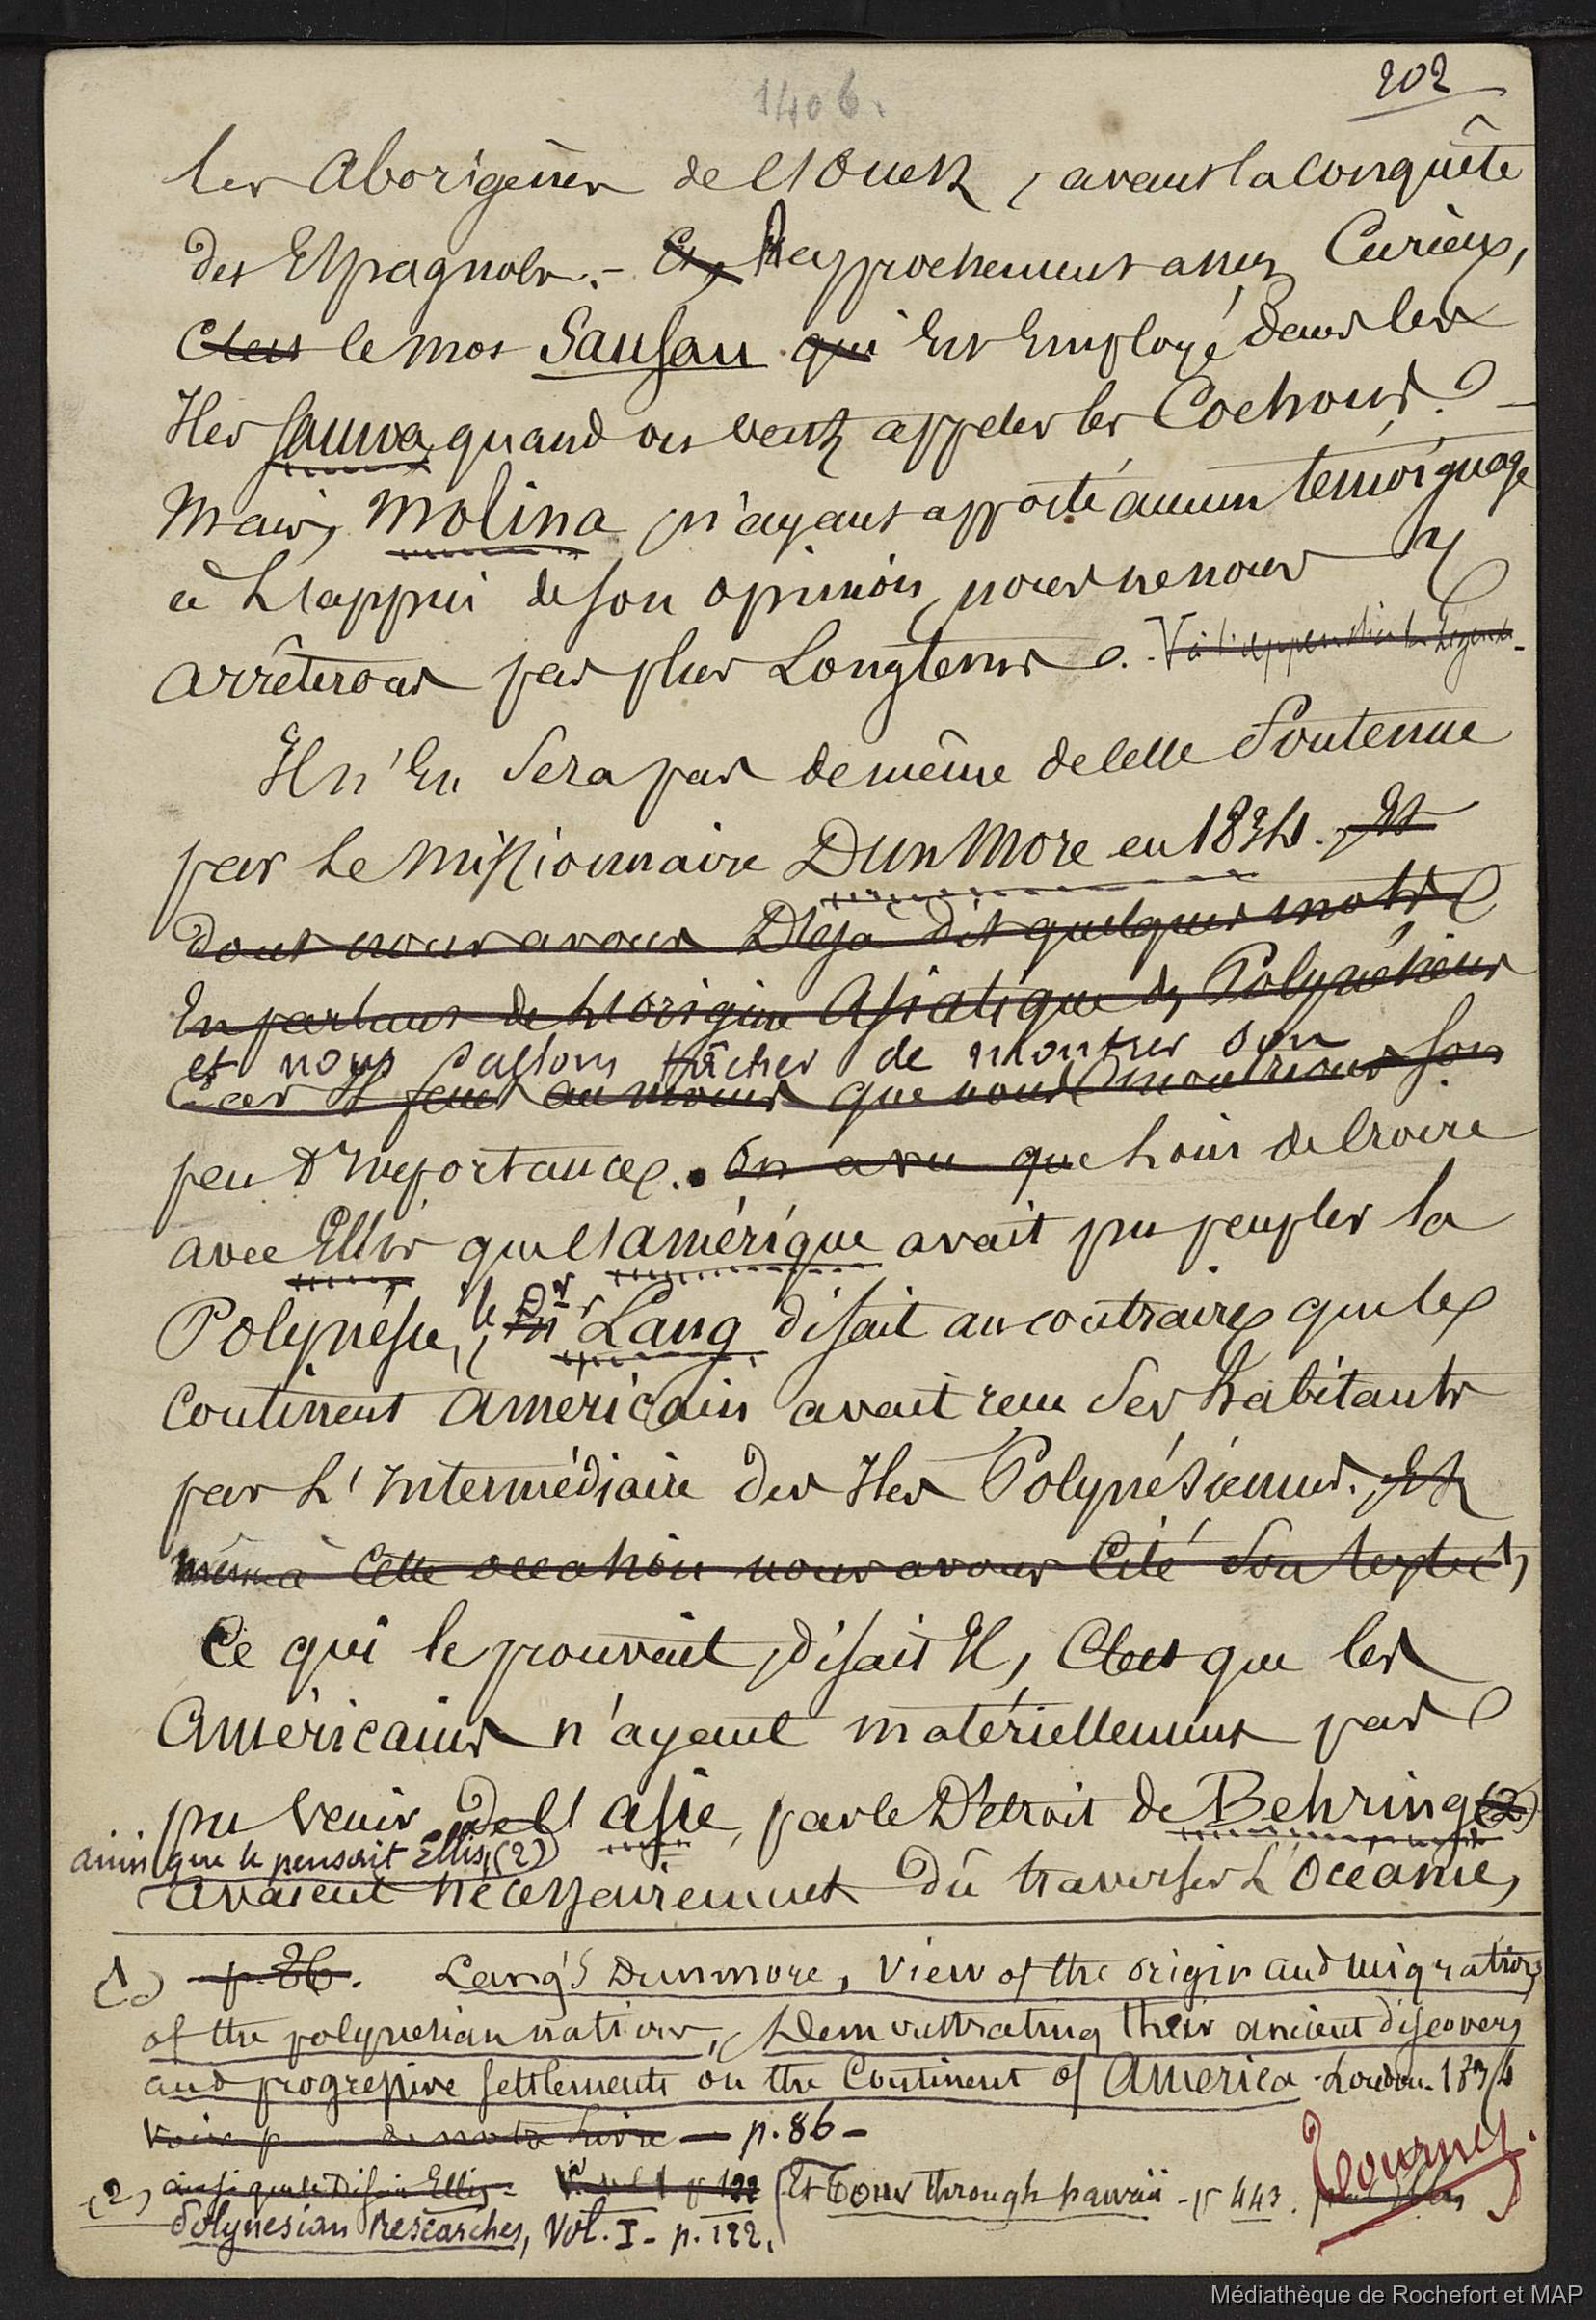 1406.
202
les aborigènes de l'Ouest, avant la conquête
des Espagnols. - Et, Rapprochement assez Curieux,
C'est le mot Sansan qui Est Employé dans les
Iles Samoa quand on veut appeler les Cochons. -
Mais, Molina n'ayant apporté aucun témoignage
à L'appui de son opinion, nous ne nous y
arrêterons pas plus Longtems. - V. à l'appendice la Légende -
Il n'En Sera pas de même de celle Soutenue
par Le Missionnaire DunMore en 1834. Et
dont nous avons Déjà dit quelques mots,
En parlant de L'origine Asiatique des Polynésiens
et nous allons tâcher de montrer son
Car Il faut au moins que nous montrions son
peu d'Importance. On a vu que Loin de Croire
avec Ellis que l'amérique avait pu peupler la
Polynésie, le Dr Lang disait au contraire que le
Continent américain avait reçu Ses habitants
par L'Intermédiaire des Iles Polynésiennes. Et
même à Cette occasion nous avons Cité Son texte (1)
Ce qui le prouvait, disait Il, C'est que les
Américains n'ayant matériellement pas
pu Venir de l'asie, par le Détroit de Behring (2)
ainsi que le pensait Ellis, (2)
avaient nécessairement Dû traverser L'Océanie,
(1) p. 86. Lang's Dunmore, View of the origin and migrations
of the polynesian nation, Demonstrating their ancient discovery
and progressive settlements on the Continent of America - London - 1834
Voir p de notre Livre — p. 86 -
(2) ainsi que le Disait Ellis - V. vol 1 p 122 Et Tour through hawaii - p 443.
Polynesian Researches, Vol. I - p. 122.
Tournez.
Médiathèque de Rochefort et MAP